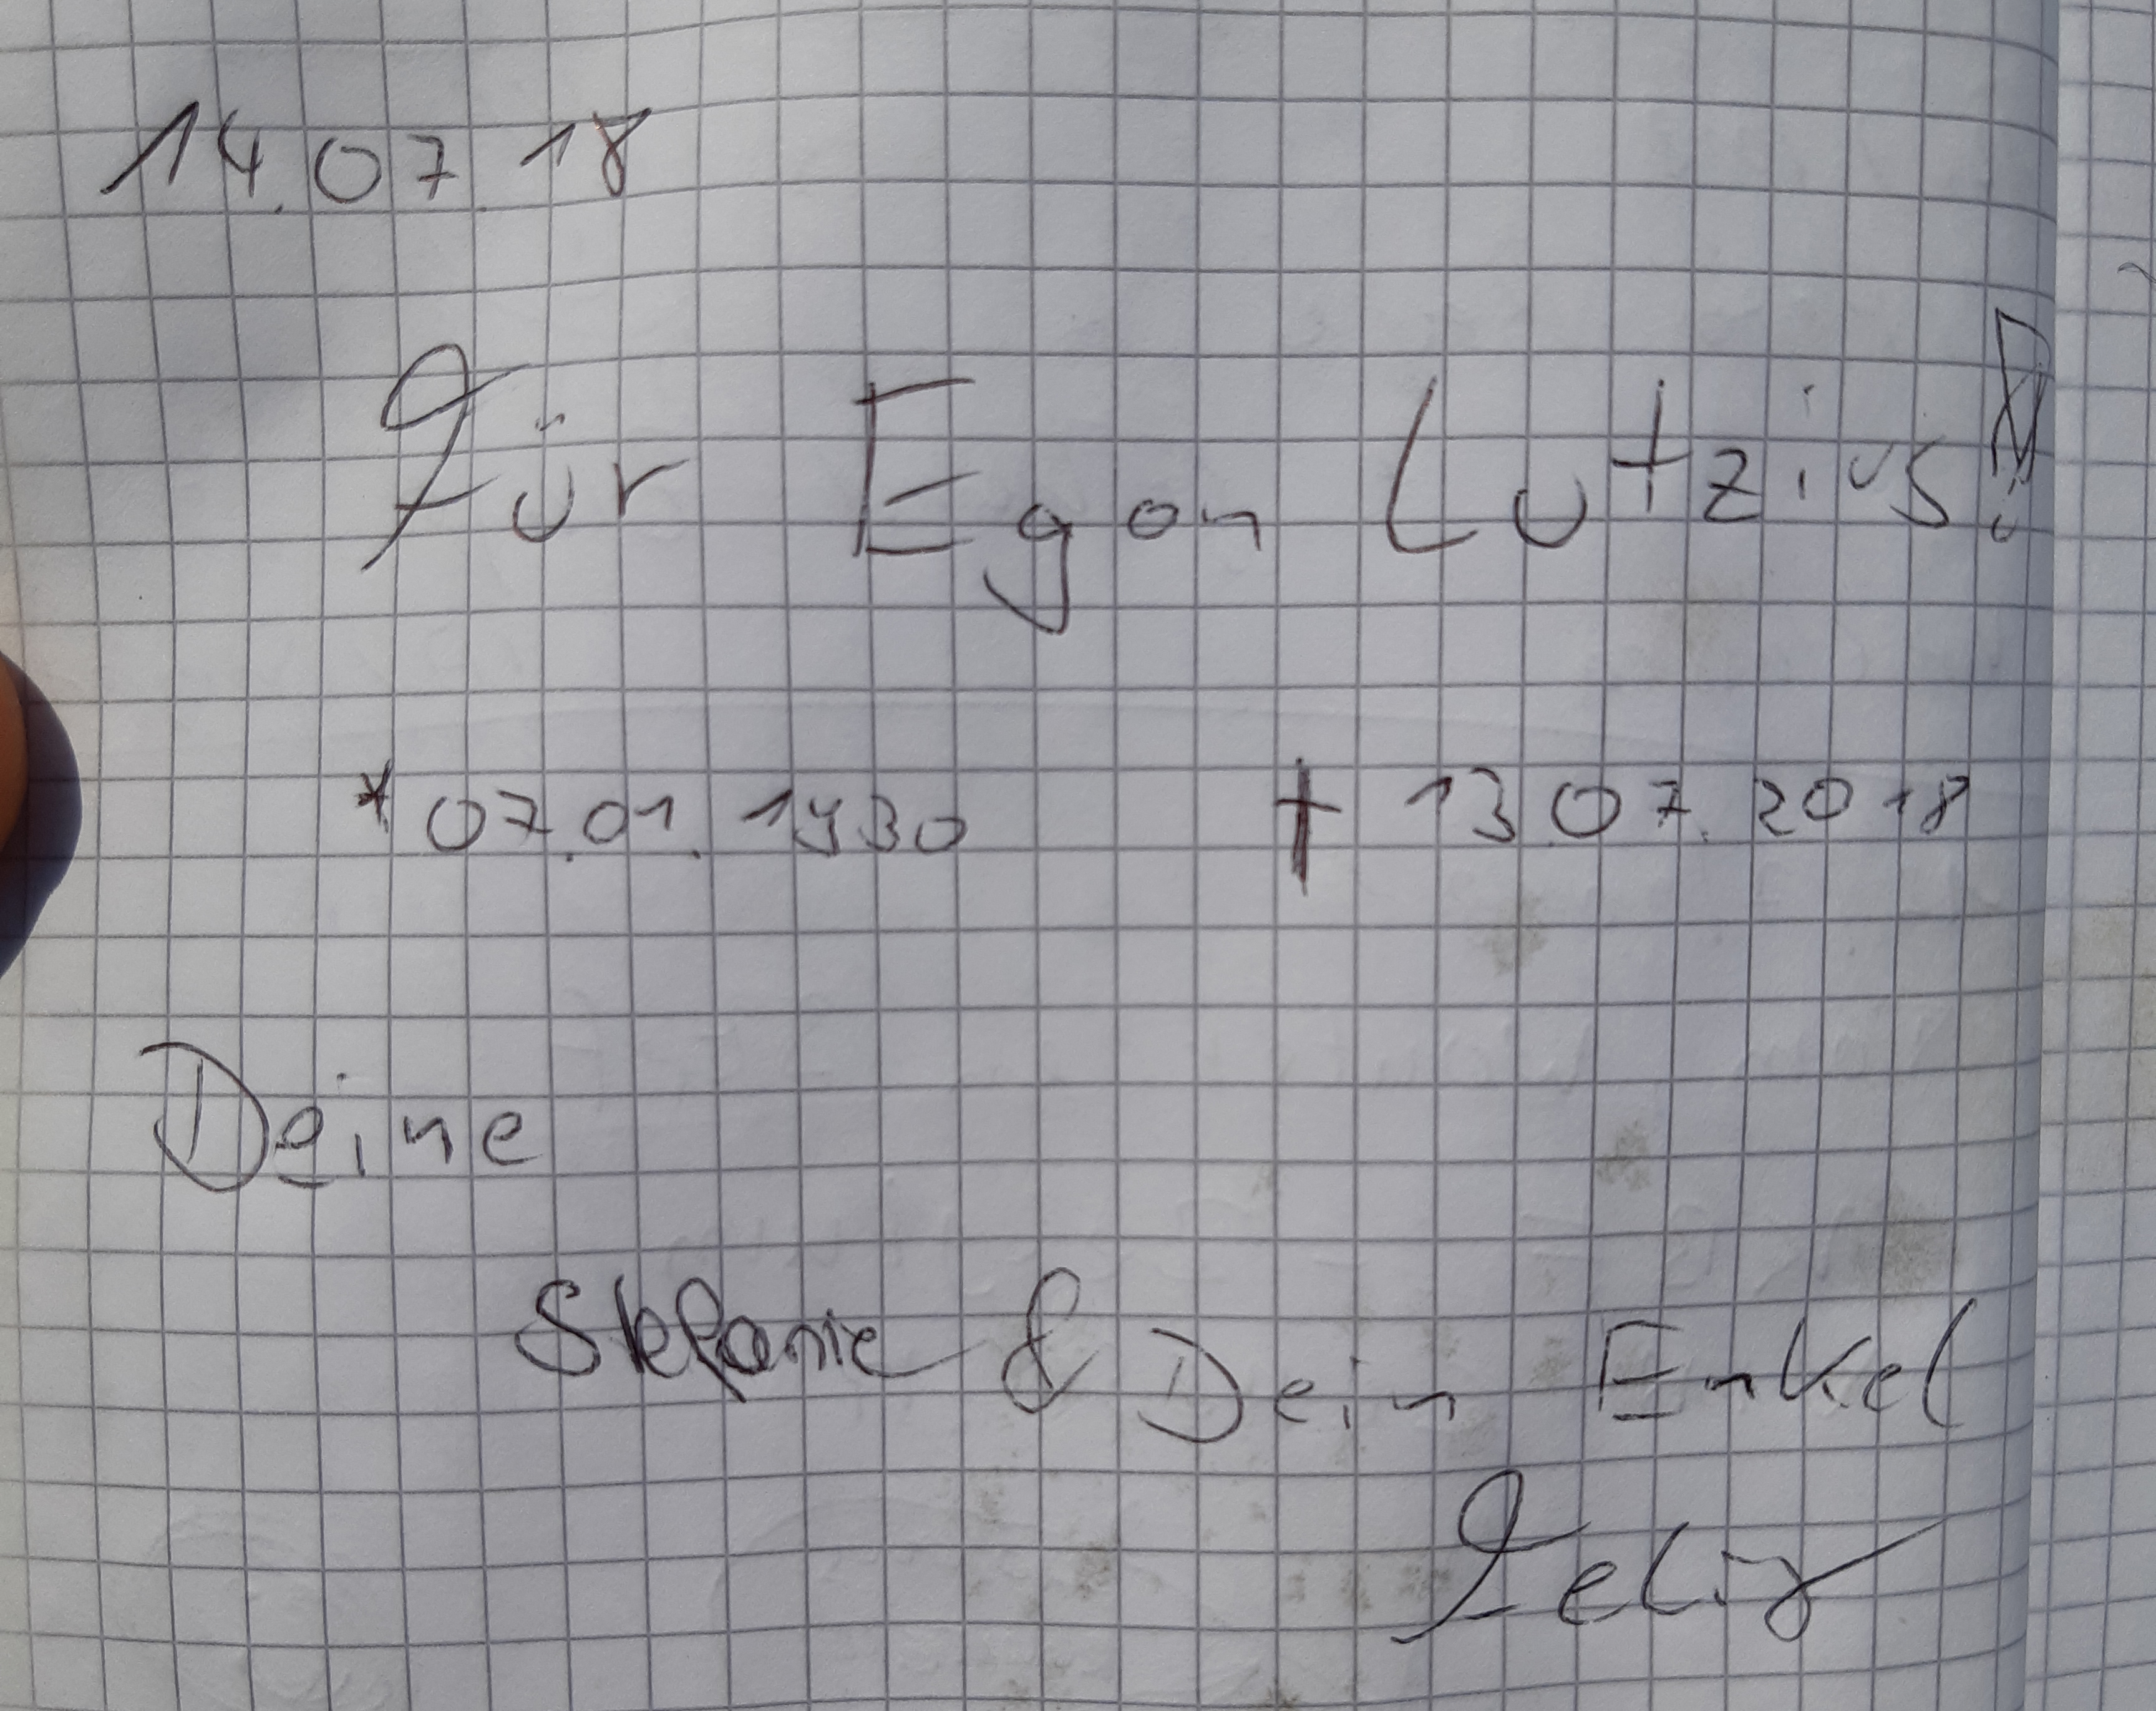 14.07.18
Für Egon Lutzius!
* 07.01.1930 † 13.07.2018
Deine
Stefanie & Dein Enkel
Felix